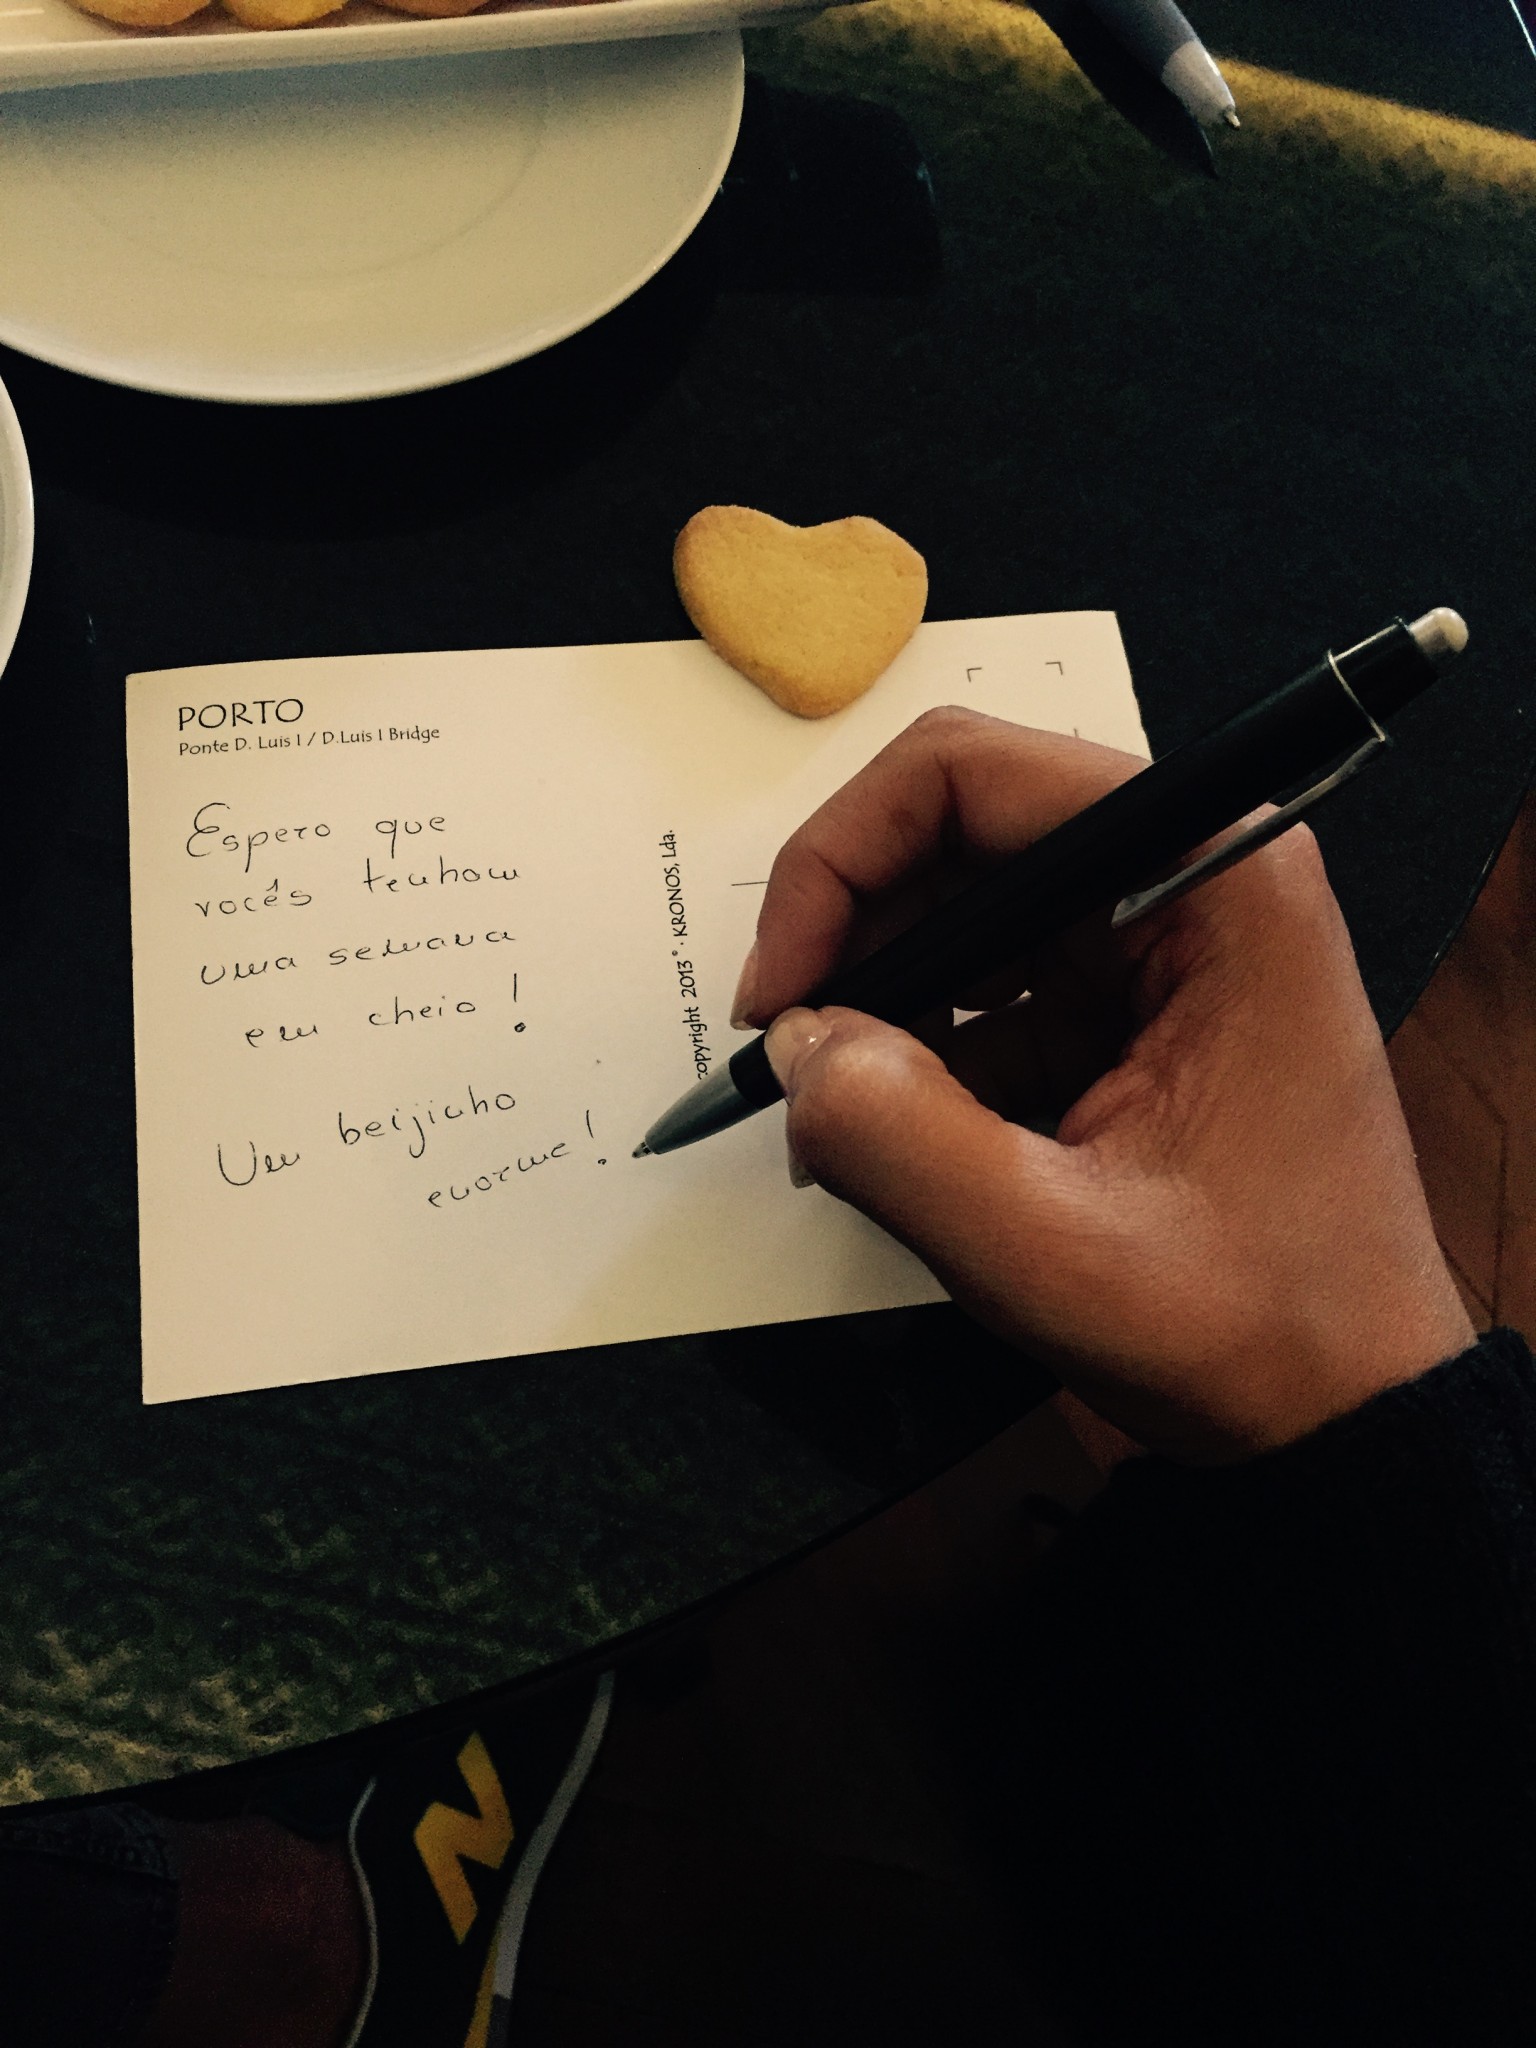 PORTO
Ponte D. Luis I / D.Luis I Bridge
Espero que
vocês tenham
uma semana
em cheio!
Um beijinho
enorme!
copyright 2013 ® · KRONOS, Lda.
N